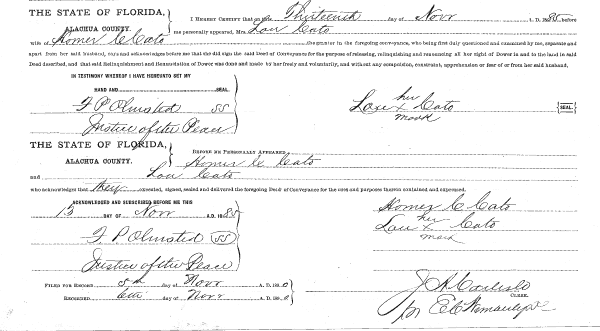 THE STATE OF FLORIDA,
ALACHUA COUNTY.
I HEREBY CERTIFY that on the Thirteenth day of Novr A.D. 1885, before
me personally appeared, Mrs. Lou Cato
wife of Homer C Cato Grantor to the foregoing conveyance, who being first duly questioned and examined by me, separate and
apart from her said husband, says and acknowledges before me that she did sign the said Deed of Conveyance for the purpose of releasing, relinquishing and renouncing all her right of Dower in and to the land in said
Deed described, and that said Relinquishment and Renunciation of Dower was done and made by her freely and voluntarily, and without any compulsion, constraint, apprehension or fear of or from her said husband.
IN TESTIMONY WHEREOF I HAVE HEREUNTO SET MY
HAND AND SEAL
F P Olmsted SS
Justice of the Peace
her
Lou x Cato {SEAL.}
mark
THE STATE OF FLORIDA,
ALACHUA COUNTY.
BEFORE ME PERSONALLY APPEARED
Homer C Cato
and Lou Cato
who acknowledges that they executed, signed, sealed and delivered the foregoing Deed of Conveyance for the uses and purposes therein contained and expressed.
ACKNOWLEDGED AND SUBSCRIBED BEFORE ME THIS
13 DAY OF Novr A.D. 1885
F. P Olmsted SS
Justice of the Peace
Homer C Cato
her
Lou x Cato
mark
FILED FOR RECORD 5th day of Novr A. D. 1890
RECORDED 6th day of Novr A. D. 1890
J A Carlisle
CLERK.
pr E C